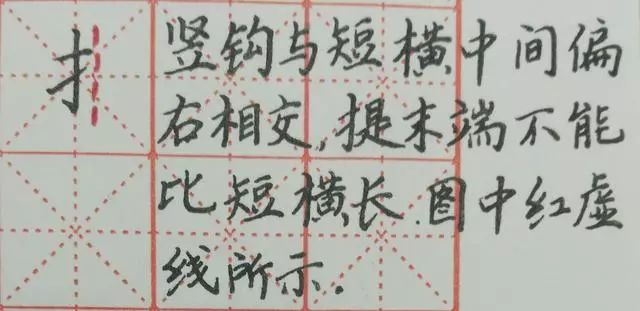 扌
竖钩与短横中间偏
右相交,提末端不能
比短横长.图中红虚
线所示.